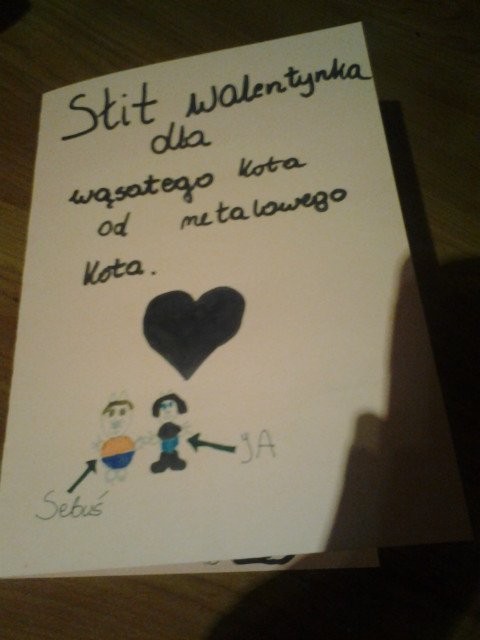 Stit walentynka
dla
wąsatego kota
od metalowego
kota.
JA
Sebuś